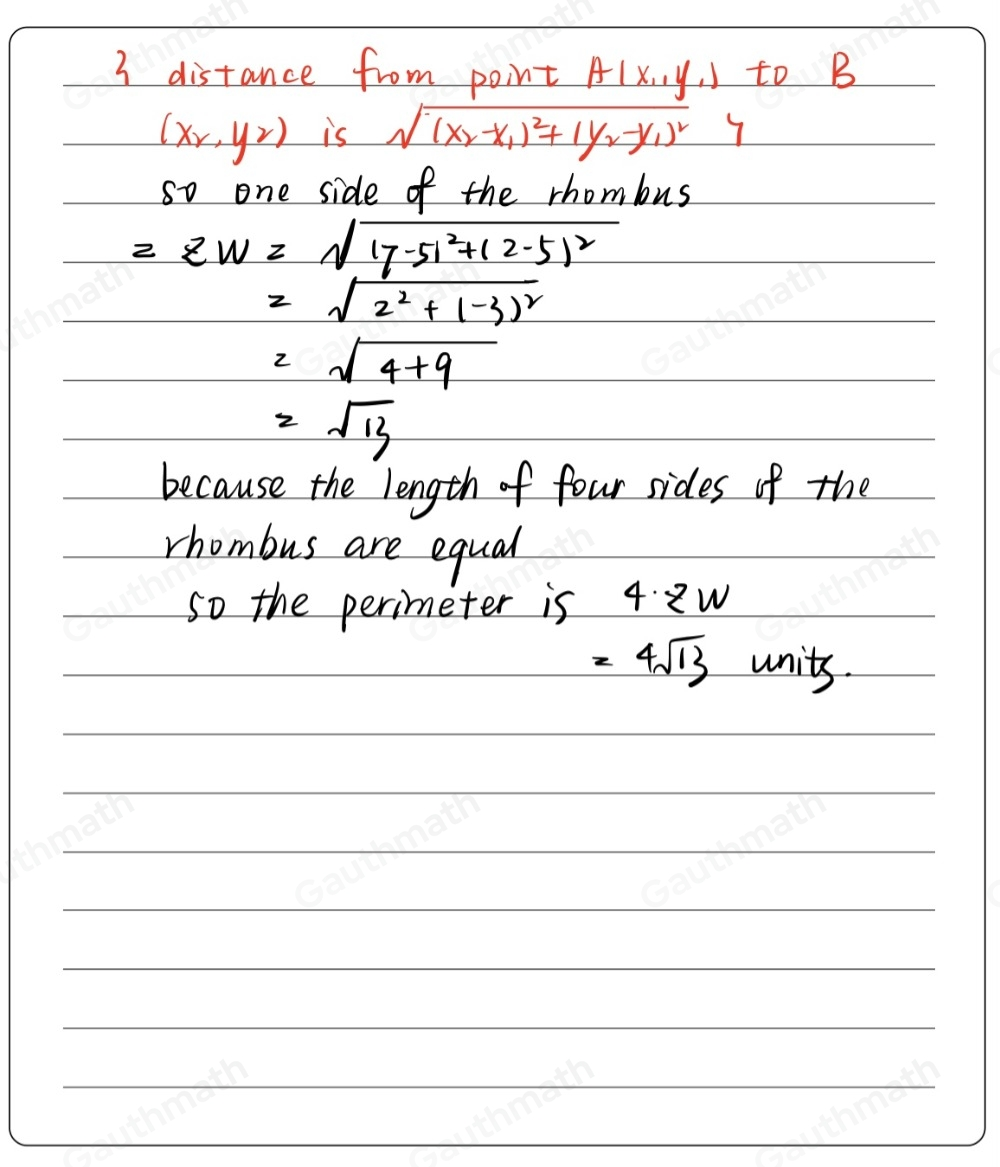 { distance from point A(x₁,y₁) to B
(x₂,y₂) is √(x₂-x₁)²+(y₂-y₁)² }
so one side of the rhombus
= ZW = √(7-5)²+(2-5)²
= √2²+(-3)²
= √4+9
= √13
because the length of four sides of the
rhombus are equal
so the perimeter is 4·ZW
= 4√13 units.